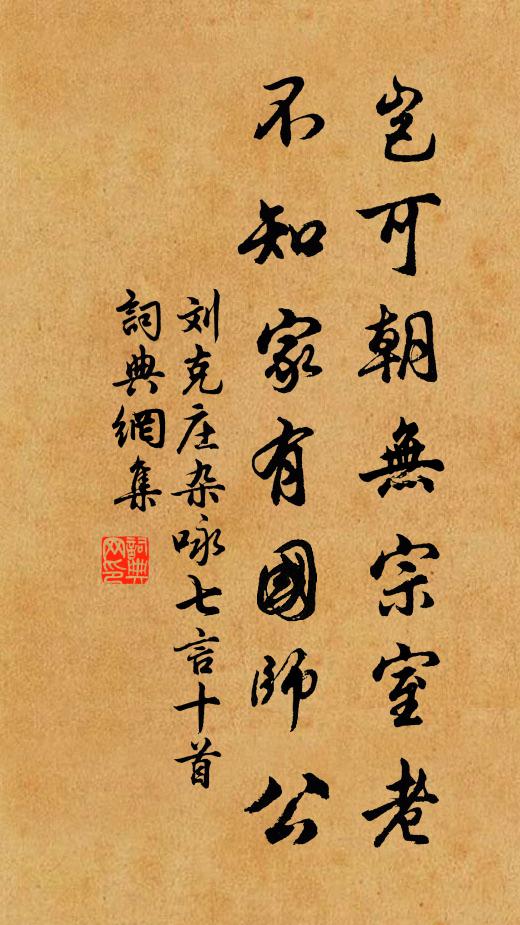 岂可朝無宗室老
不知家有國師公
刘克庄杂咏七言十首
詞典網集
詞典
网印